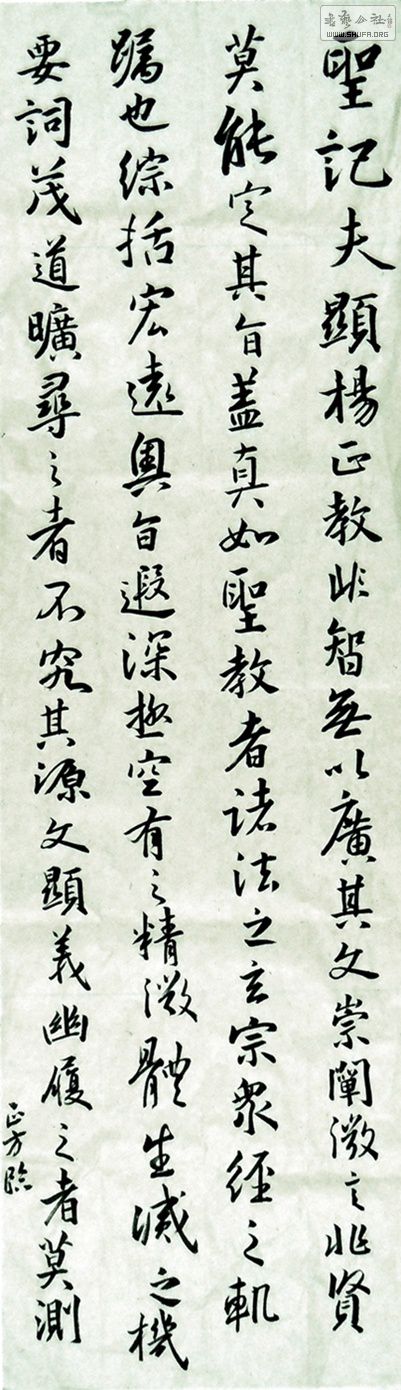 聖記夫顯楊正教非智無以廣其文崇闡微言非賢
莫能定其旨盖真如聖教者諸法之玄宗衆經之軌
躅也綜括宏遠奧旨遐深極空有之精微體生滅之機
要詞茂道曠尋之者不究其源文顯義幽履之者莫測
正方臨
書藝公社
WWW.SHUFA.ORG